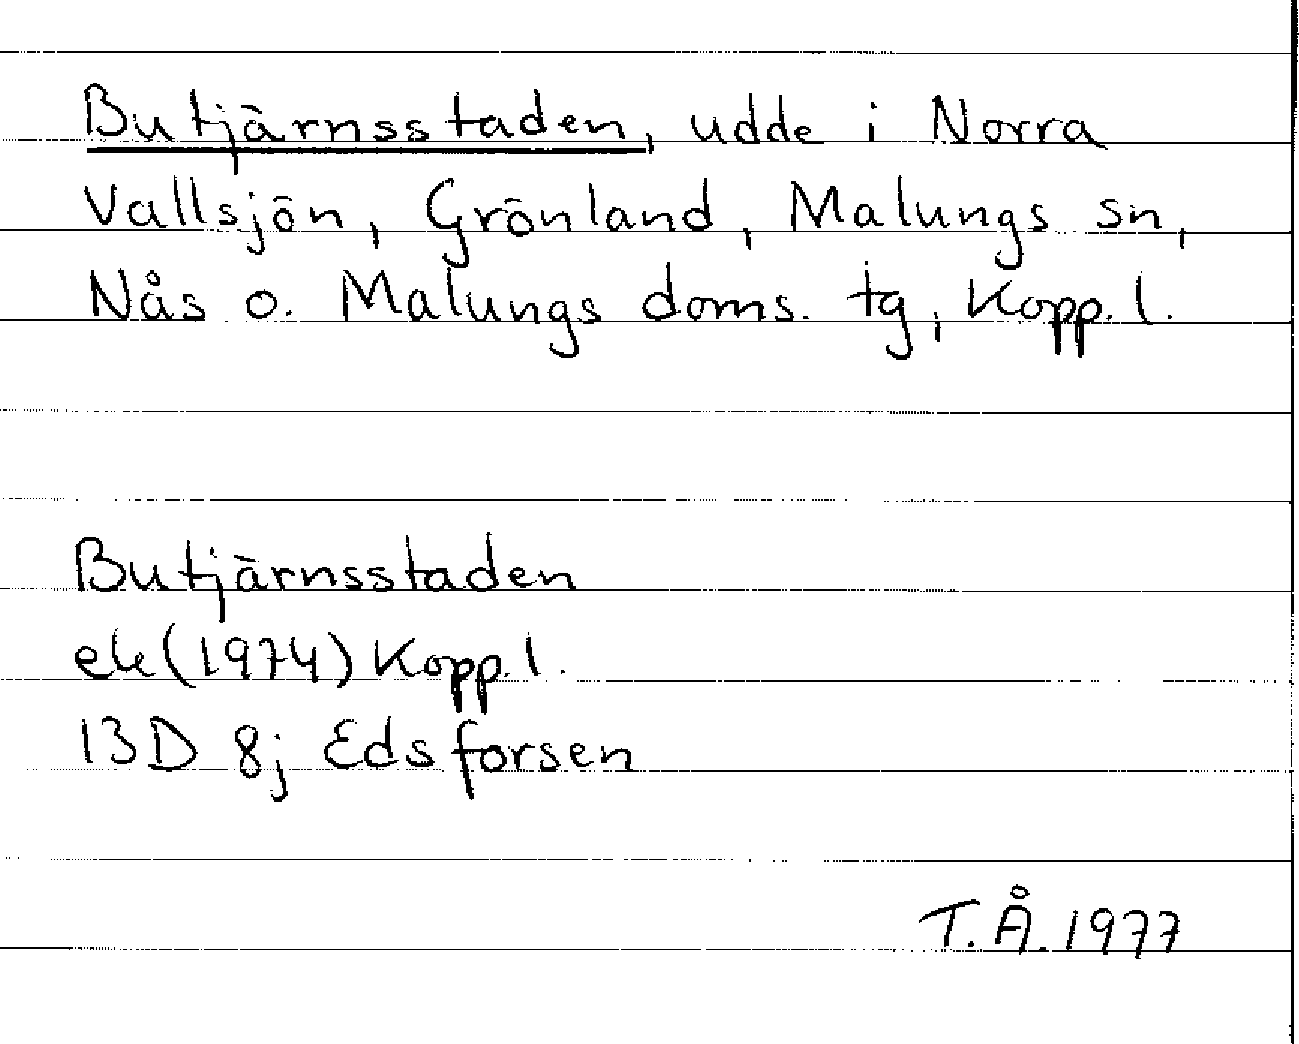 Butjärnsstaden, udde i Norra
Vallsjön, Grönland, Malungs sn,
Nås o. Malungs doms. tg, Kopp. l.
Butjärnsstaden
ek (1974) Kopp. l.
13D 8j Edsforsen
T.Å. 1977